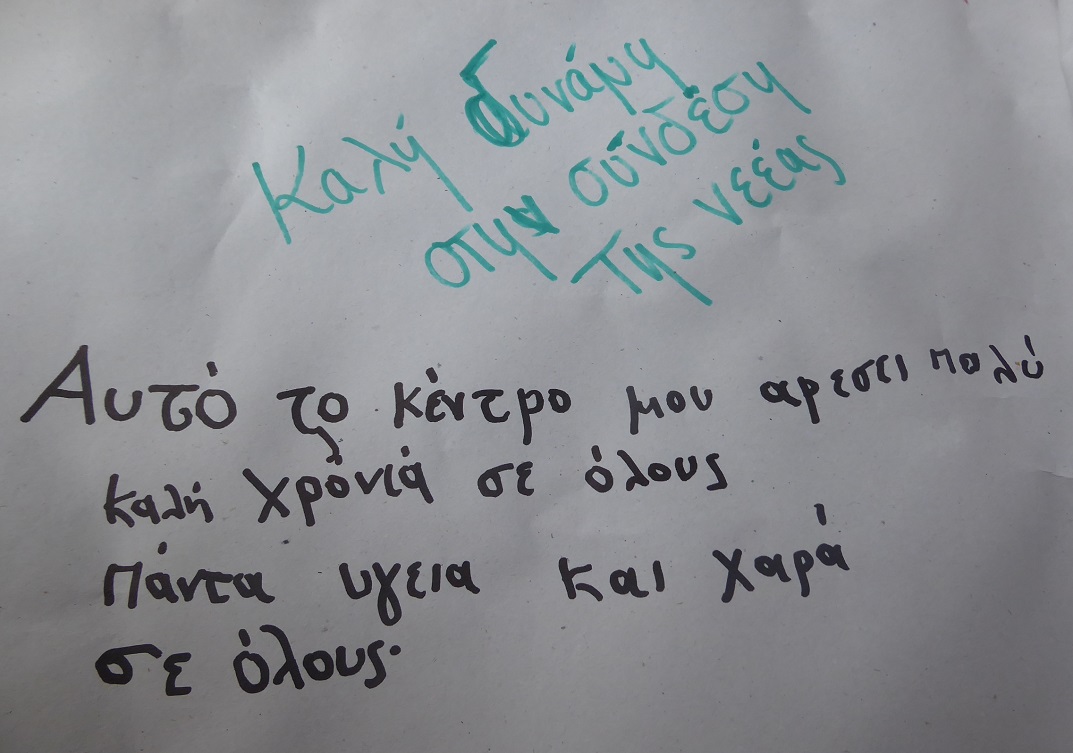 Καλή δυνάμη
στην σύνδέση
της νέέας
Αυτό το κέντρο μου αρεσει πολύ
καλή χρόνιά σε όλους
πάντα υγεια και χαρά
σε όλους.